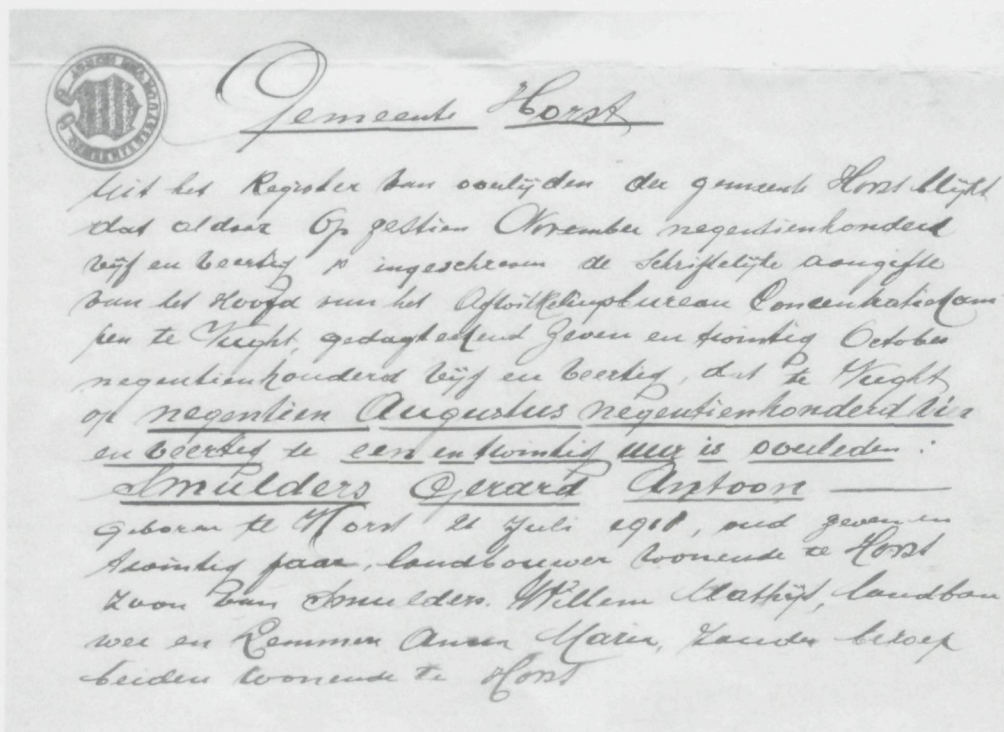 Gemeente Horst
Uit het Register van overlijden der gemeente Horst blijkt
dat aldaar Op zestien November negentienhonderd
vijf en veertig is ingeschreven de Schriftelijke aangifte
van het Hoofd van het Afwikkelingsbureau Concentratiekam
pen te Vught, gedagtekend Zeven en twintig October
negentienhonderd vijf en veertig, dat te Vught
op negentien Augustus negentienhonderd vier
en veertig te een en twintig uur is overleden:
Smulders Gerard Antoon
geboren te Horst 21 Juli, oud zeven en
twintig jaar, landbouwer wonende te Horst
Zoon van Smulders Willem Mathijs, landbou
wer en Lemmen Anna Maria, Zonder beroep
beiden wonende te Horst